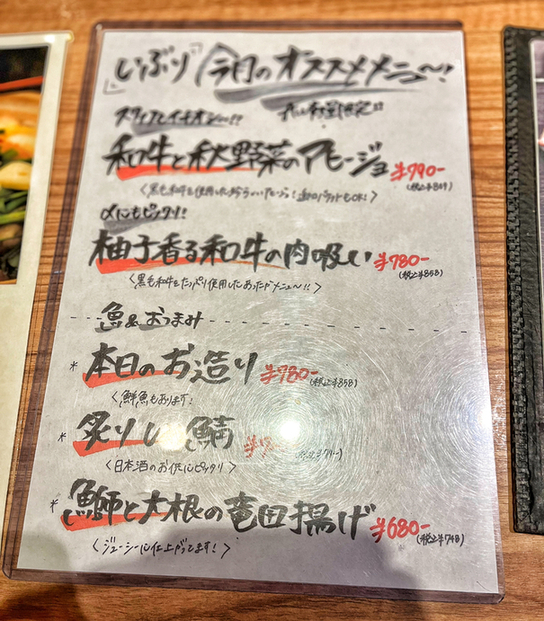 いぶり「今日のオススメメニュ〜!
スタッフイチオシ!!
和牛と秋野菜のアヒージョ ¥790-
(税込¥869)
〆にもピッタリ!
柚子香る和牛の肉吸い ¥780-
(税込¥858)
〈黒毛和牛をたっぷり使用したあったかメニュ〜!!〉
魚&おつまみ
*本日のお造り ¥780-
(税込¥858)
〈鮮魚もあります!
*炙りし 鯖
〈日本酒のお供にピッタリ〉
*鰤と大根の竜田揚げ ¥680-
(税込¥748)
〈ジューシーに仕上がってます!〉